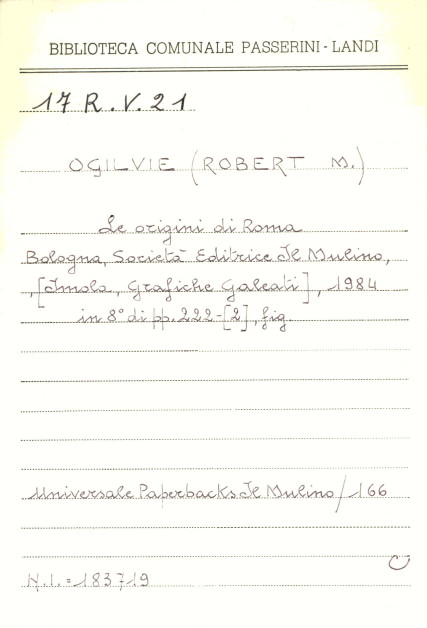 BIBLIOTECA COMUNALE PASSERINI - LANDI
17 R.V.21
OGILVIE (ROBERT M.)
Le origini di Roma
Bologna, Società Editrice Il Mulino,
,[Imola, Grafiche Galeati], 1984
in 8° di pp. 222-[2], fig.
Universale Paperbacks Il Mulino/166
N.I.=183719